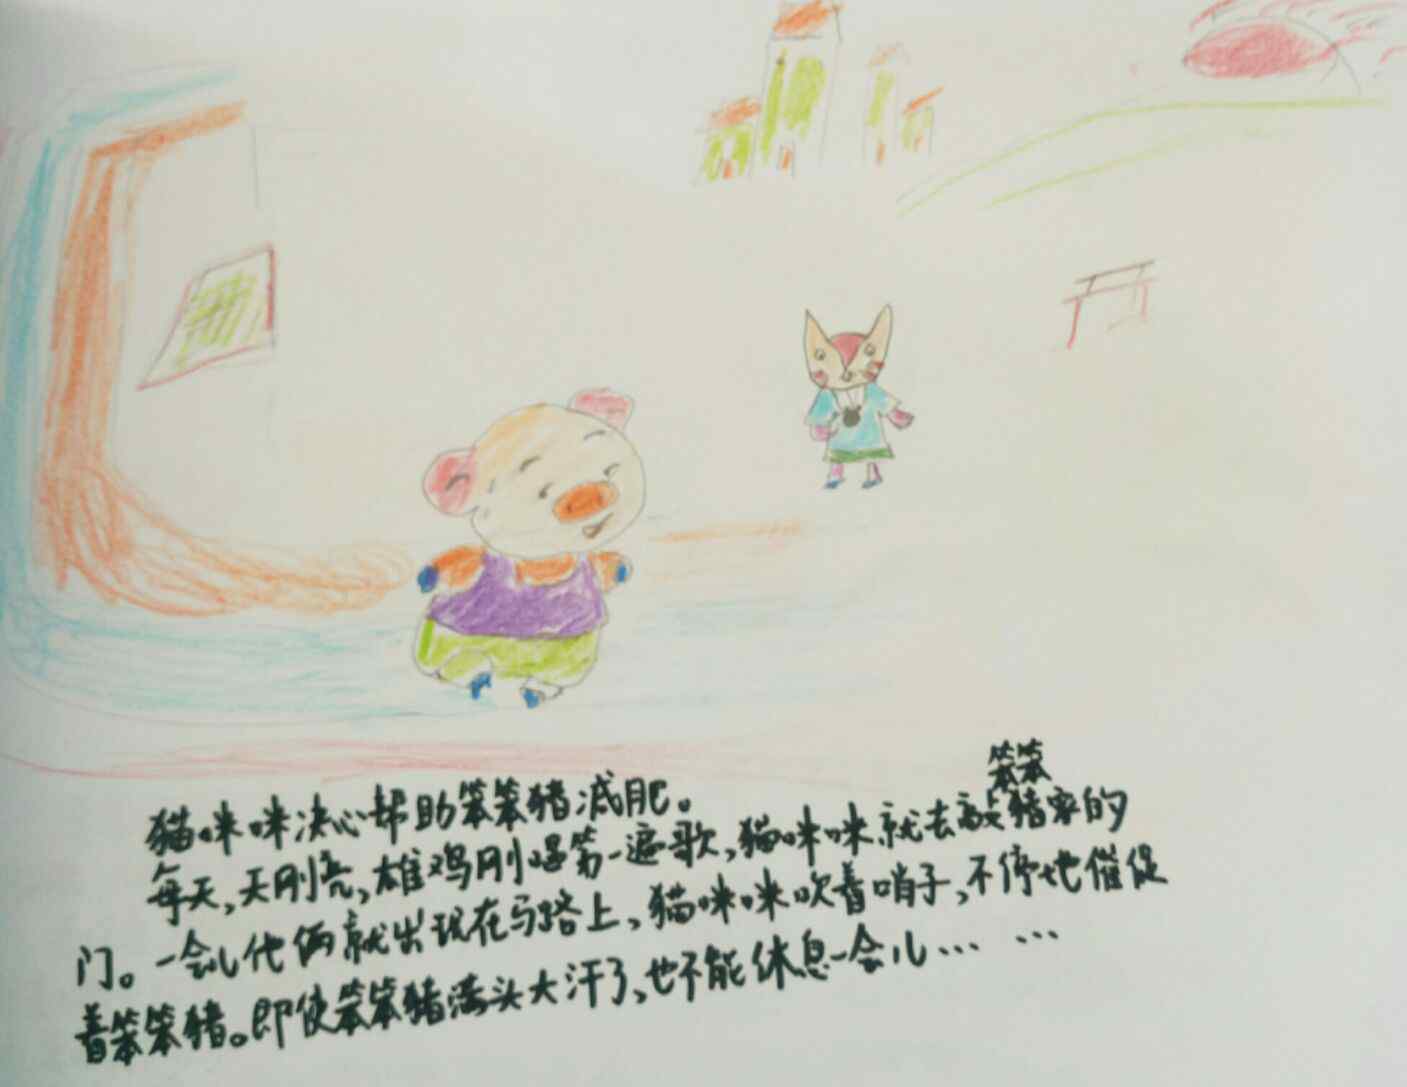 猫咪咪决心帮助笨笨猪减肥。
笨笨
每天,天刚亮,雄鸡刚唱第一遍歌,猫咪咪就去敲猪家的
门。一会儿他俩就出现在马路上,猫咪咪吹着哨子,不停地催促
着笨笨猪。即使笨笨猪满头大汗了,也不能休息一会儿… …